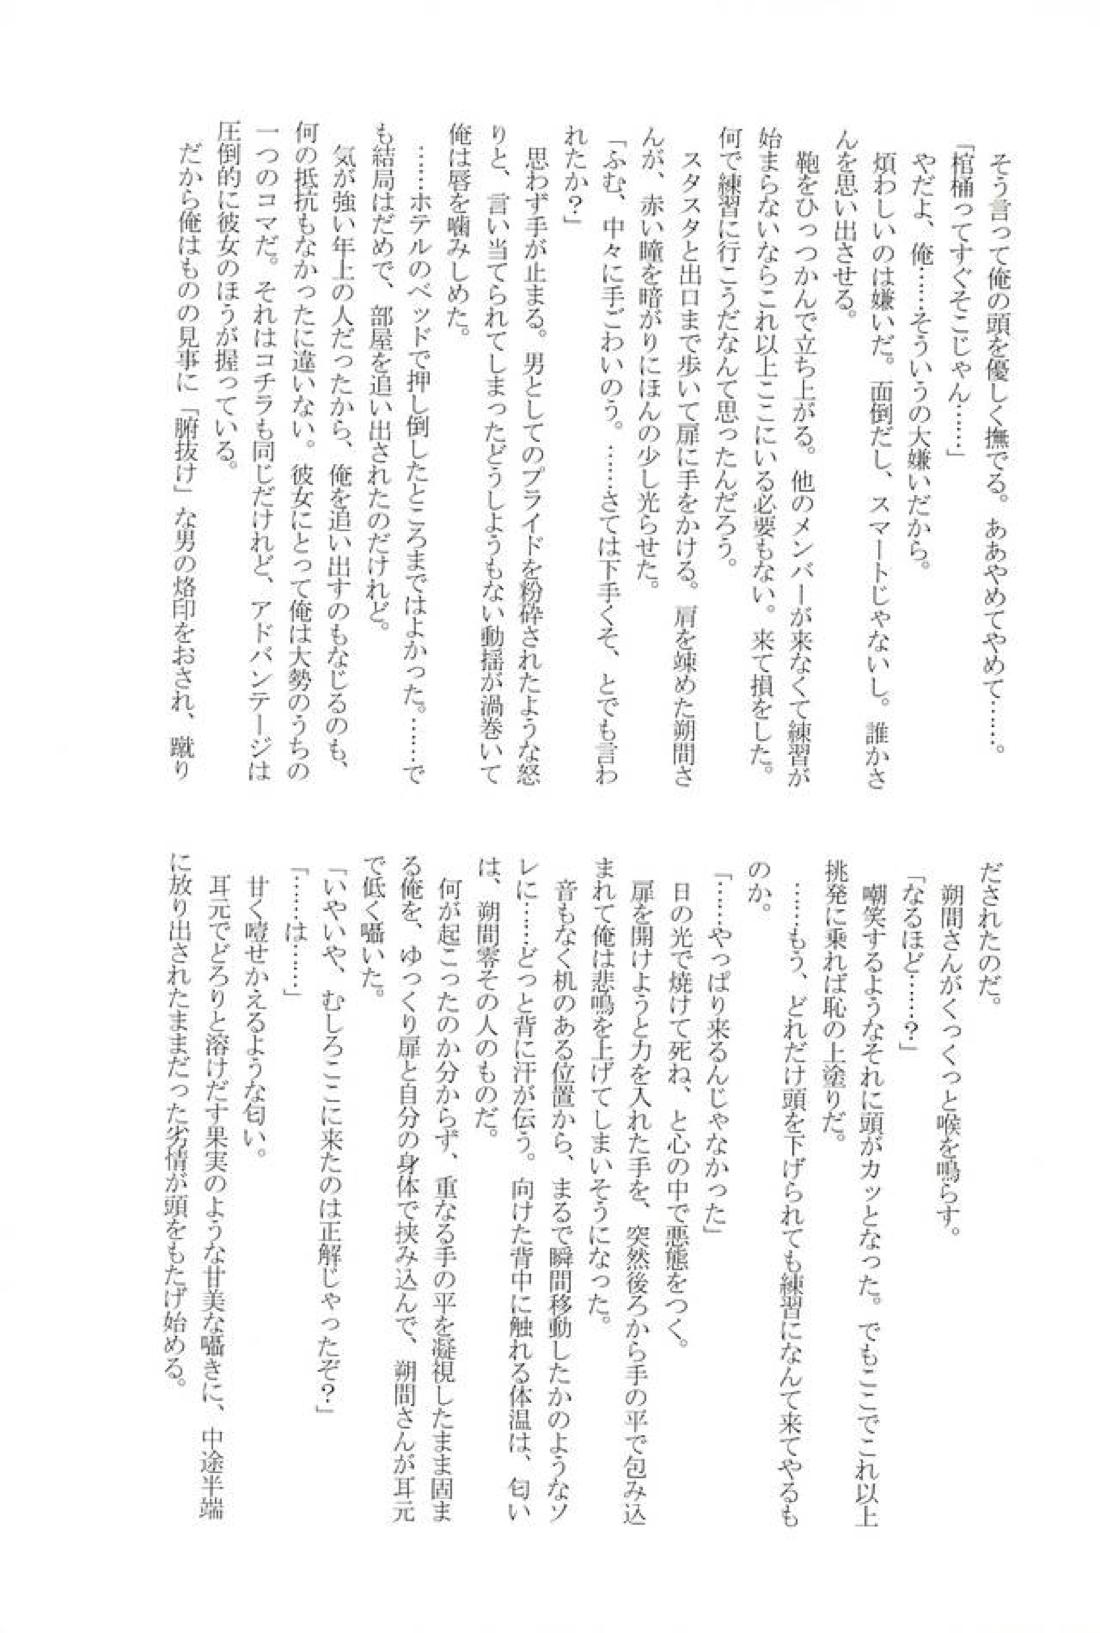 そう言って俺の頭を優しく撫でる。ああやめてやめて……。
「棺桶ってすぐそこじゃん……」
やだよ、俺……そういうの大嫌いだから。
煩わしいのは嫌いだ。面倒だし、スマートじゃないし。誰かさ
んを思い出させる。
鞄をひっつかんで立ち上がる。他のメンバーが来なくて練習が
始まらないならこれ以上ここにいる必要もない。来て損をした。
何で練習に行こうだなんて思ったんだろう。
スタスタと出口まで歩いて扉に手をかける。肩を竦めた朔間さ
んが、赤い瞳を暗がりにほんの少し光らせた。
「ふむ、中々に手ごわいのう。……さては下手くそ、とでも言わ
れたか？」
思わず手が止まる。男としてのプライドを粉砕されたような怒
りと、言い当てられてしまったどうしようもない動揺が渦巻いて
俺は唇を噛みしめた。
……ホテルのベッドで押し倒したところまではよかった。……で
も結局はだめで、部屋を追い出されたのだけれど。
気が強い年上の人だったから、俺を追い出すのもなじるのも、
何の抵抗もなかったに違いない。彼女にとって俺は大勢のうちの
一つのコマだ。それはコチラも同じだけれど、アドバンテージは
圧倒的に彼女のほうが握っている。
だから俺はものの見事に「腑抜け」な男の烙印をおされ、蹴り
だされたのだ。
朔間さんがくっくっと喉を鳴らす。
「なるほど……？」
嘲笑するようなそれに頭がカッとなった。でもここでこれ以上
挑発に乗れば恥の上塗りだ。
……もう、どれだけ頭を下げられても練習になんて来てやるも
のか。
「……やっぱり来るんじゃなかった」
日の光で焼けて死ね、と心の中で悪態をつく。
扉を開けようと力を入れた手を、突然後ろから手の平で包み込
まれて俺は悲鳴を上げてしまいそうになった。
音もなく机のある位置から、まるで瞬間移動したかのようなソ
レに……どっと背に汗が伝う。向けた背中に触れる体温は、匂い
は、朔間零その人のものだ。
何が起こったのか分からず、重なる手の平を凝視したまま固ま
る俺を、ゆっくり扉と自分の身体で挟み込んで、朔間さんが耳元
で低く囁いた。
「いやいや、むしろここに来たのは正解じゃったぞ？」
「……は……」
甘く噎せかえるような匂い。
耳元でどろりと溶けだす果実のような甘美な囁きに、中途半端
に放り出されたままだった劣情が頭をもたげ始める。